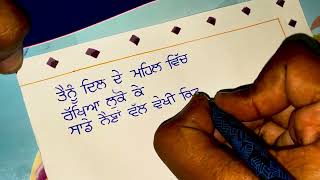 ਤੈਨੂੰ ਦਿਲ ਦੇ ਮਹਿਲ ਵਿੱਚ
ਰੱਖਿਆ ਲੁਕੋ ਕੇ
ਸਾਡੇ ਨੈਣਾਂ ਵੱਲ ਵੇਖੀ